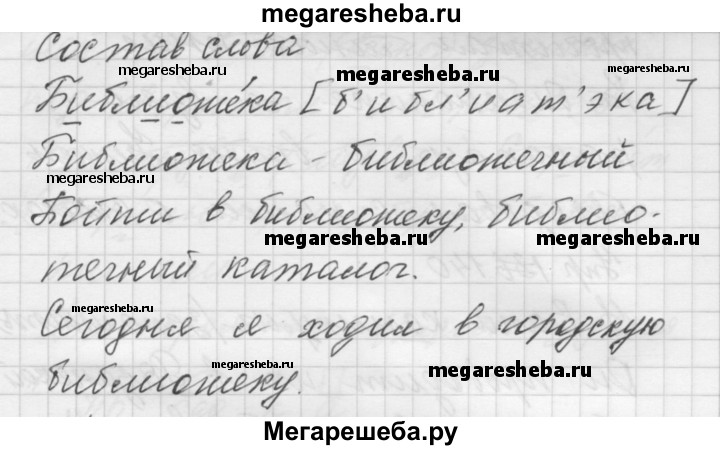 megaresheba.ru
Состав слова
megaresheba.ru megaresheba.ru megaresheba.ru
Библиоте́ка [б'ибл'иат'эка]
Библиотека - библиотечный
megaresheba.ru
Пойти в библиотеку, библио-
megaresheba.ru megaresheba.ru
течный каталог.
megaresheba.ru
Сегодня я ходил в городскую
megaresheba.ru megaresheba.ru
библиотеку.
Мегарешеба.ру